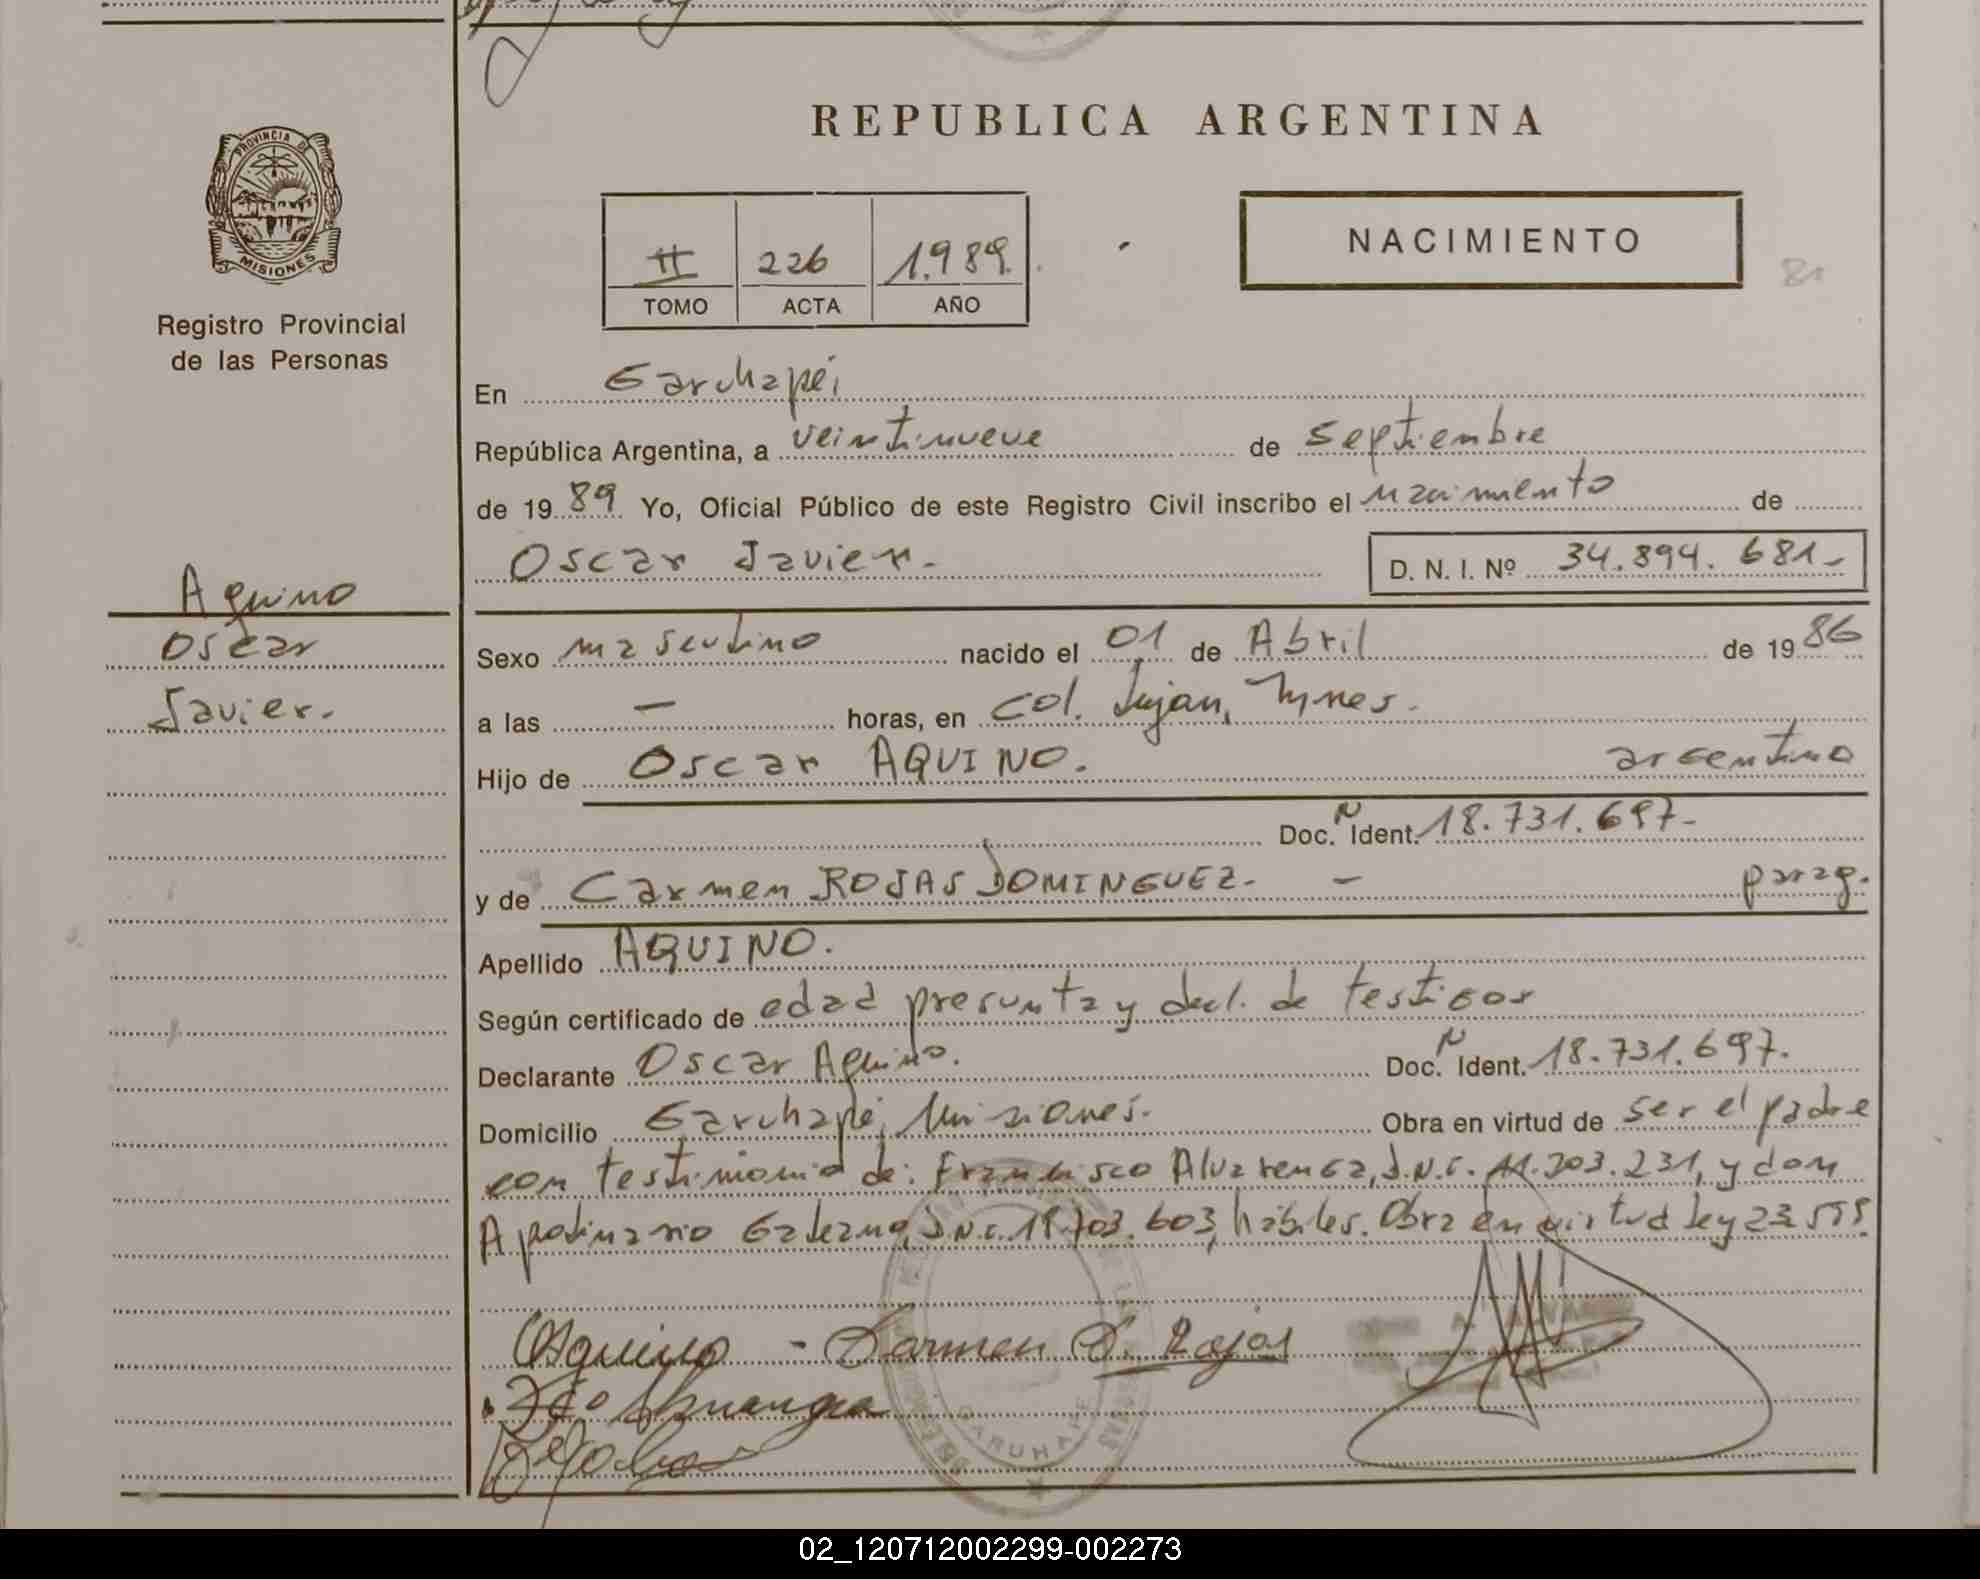 REPUBLICA ARGENTINA
PROVINCIA DE
MISIONES
Registro Provincial
de las Personas
NACIMIENTO
II 226 1.989.
TOMO ACTA AÑO
En Garuhapé,
República Argentina, a veintinueve de septiembre
de 1989 Yo, Oficial Público de este Registro Civil inscribo el nacimiento de
Oscar Javier.-
D. N. I. Nº 34.894.681-
Aquino
Oscar
Javier.
Sexo masculino nacido el 01 de Abril de 1986
a las — horas, en Col. Lujan, Mnes.
Hijo de Oscar AQUINO. argentino
Doc. N Ident. 18.731.697-
y de Carmen ROJAS DOMINGUEZ. - parag.
Apellido AQUINO.
Según certificado de edad presunta y decl. de testigos
Declarante Oscar Aquino. Doc. N Ident. 18.731.697.
Domicilio Garuhapé, Misiones. Obra en virtud de ser el padre
con testimonio de: Francisco Alvarenga, D.N.I. 11.203.231, y don
Apolinario Galeano, D.N.I. 703.603, hábiles. Obra en virtud Ley 23
OAquino - Carmen D. Rojas
GARUHAPE
02_120712002299-002273